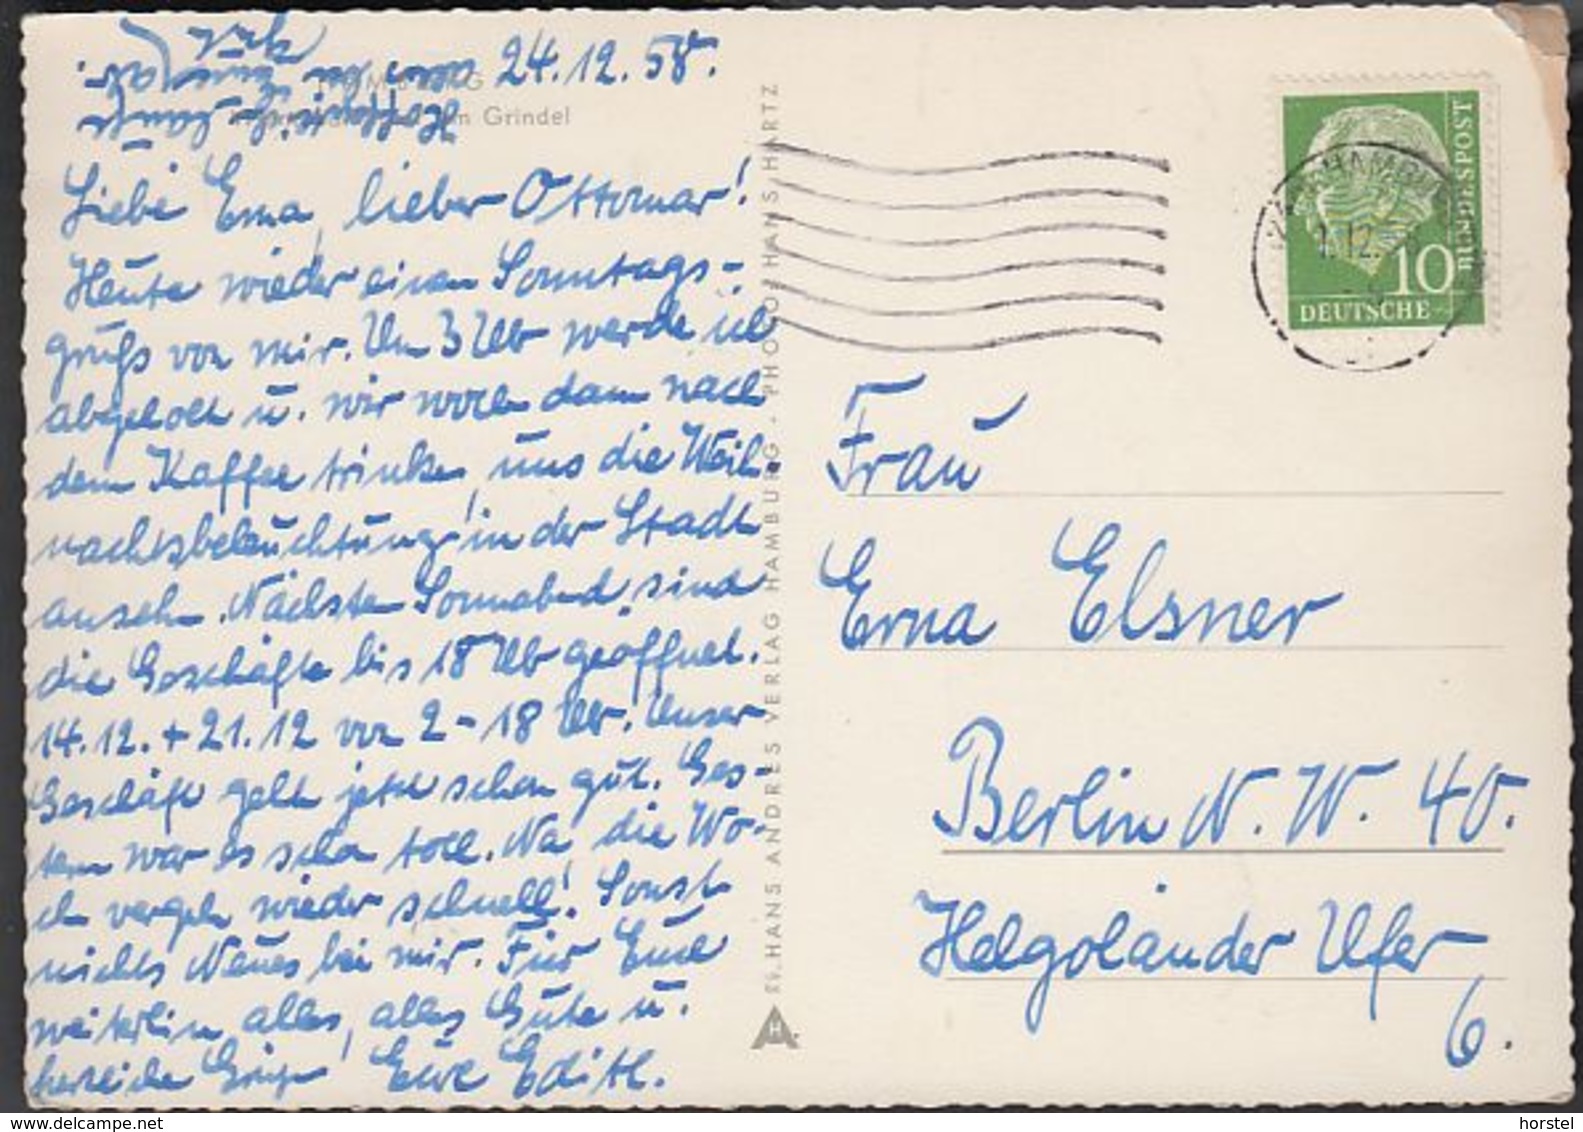 24.12.58.
HAMBURG
am Grindel
Liebe Erna, lieber Ottomar!
Heute wieder einen Sonntags-
gruß von mir. Um 3 Uhr werde ich
abgeholt u. wir wollen dann nach
dem Kaffee trinken uns die Weih-
nachtsbeleuchtung in der Stadt
ansehn. Nächsten Sonnabend sind
die Geschäfte bis 18 Uhr geöffnet.
14.12. + 21.12 von 2-18 Uhr. Unser
Geschäft geht jetzt schon gut. Ges-
tern war es schon toll. Na die Wo-
chen vergehn wieder schnell! Sonst
nichts Neues bei mir. Für Euch
weiterhin alles, alles Gute u.
herzliche Grüße Eure Edith.
PHOTO HANS HARTZ
HANS ANDRES VERLAG HAMBURG
H
BUNDESPOST
10
DEUTSCHE
HAMBURG
Frau
Erna Elsner
Berlin N.W. 40.
Helgoländer Ufer
6.
www.delcampe.net
horstel